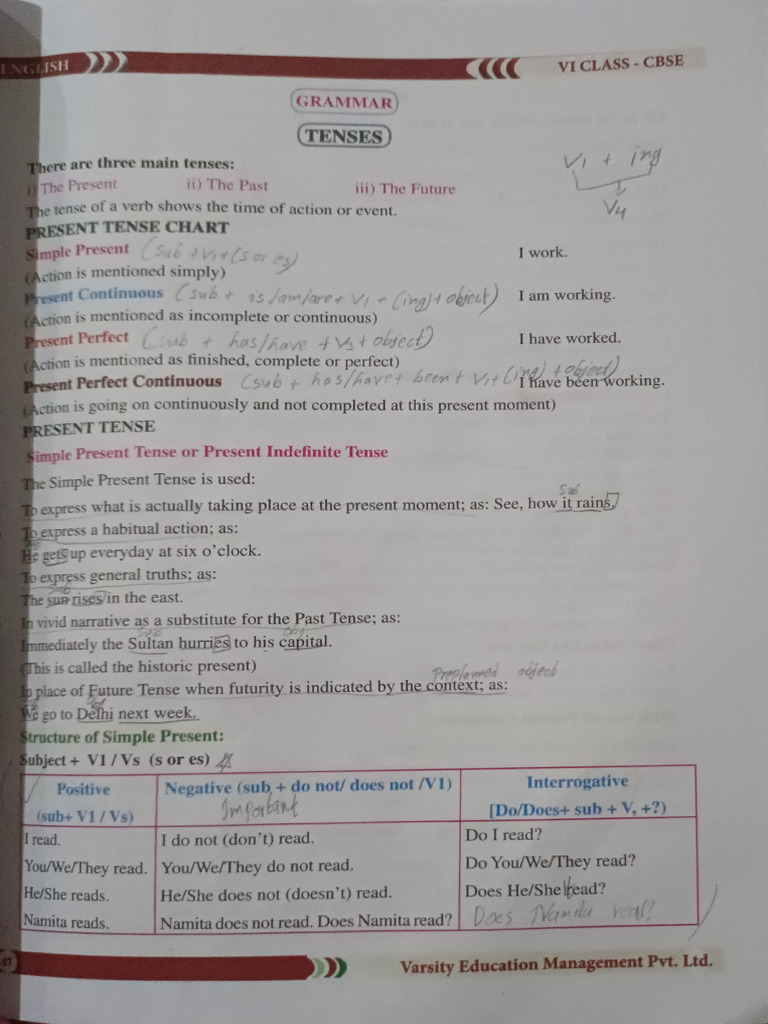 ENGLISH
VI CLASS - CBSE
GRAMMAR
TENSES
There are three main tenses:
V1 + ing
i) The Present ii) The Past iii) The Future
V4
The tense of a verb shows the time of action or event.
PRESENT TENSE CHART
Simple Present (sub + V1 + (s or es) I work.
(Action is mentioned simply)
Present Continuous (sub + is/am/are + V1 + (ing) + object) I am working.
(Action is mentioned as incomplete or continuous)
Present Perfect (sub + has/have + V3 + object) I have worked.
(Action is mentioned as finished, complete or perfect)
Present Perfect Continuous (sub + has/have + been + V1 + (ing) + object) I have been working.
(Action is going on continuously and not completed at this present moment)
PRESENT TENSE
Simple Present Tense or Present Indefinite Tense
The Simple Present Tense is used:
Sub
To express what is actually taking place at the present moment; as: See, how it rains,
To express a habitual action; as:
He gets up everyday at six o'clock.
To express general truths; as:
Sub
The sun rises in the east.
In vivid narrative as a substitute for the Past Tense; as:
Sub Obj
Immediately the Sultan hurries to his capital.
(This is called the historic present)
Preplanned object
In place of Future Tense when futurity is indicated by the context; as:
We go to Delhi next week.
Structure of Simple Present:
Subject + V1 / Vs (s or es)
Positive Negative (sub + do not/ does not /V1) Interrogative
(sub+ V1 / Vs) Important [Do/Does+ sub + V, +?)
I read. I do not (don't) read. Do I read?
You/We/They read. You/We/They do not read. Do You/We/They read?
He/She reads. He/She does not (doesn't) read. Does He/She read?
Namita reads. Namita does not read. Does Namita read? Does Namita read?
47
Varsity Education Management Pvt. Ltd.